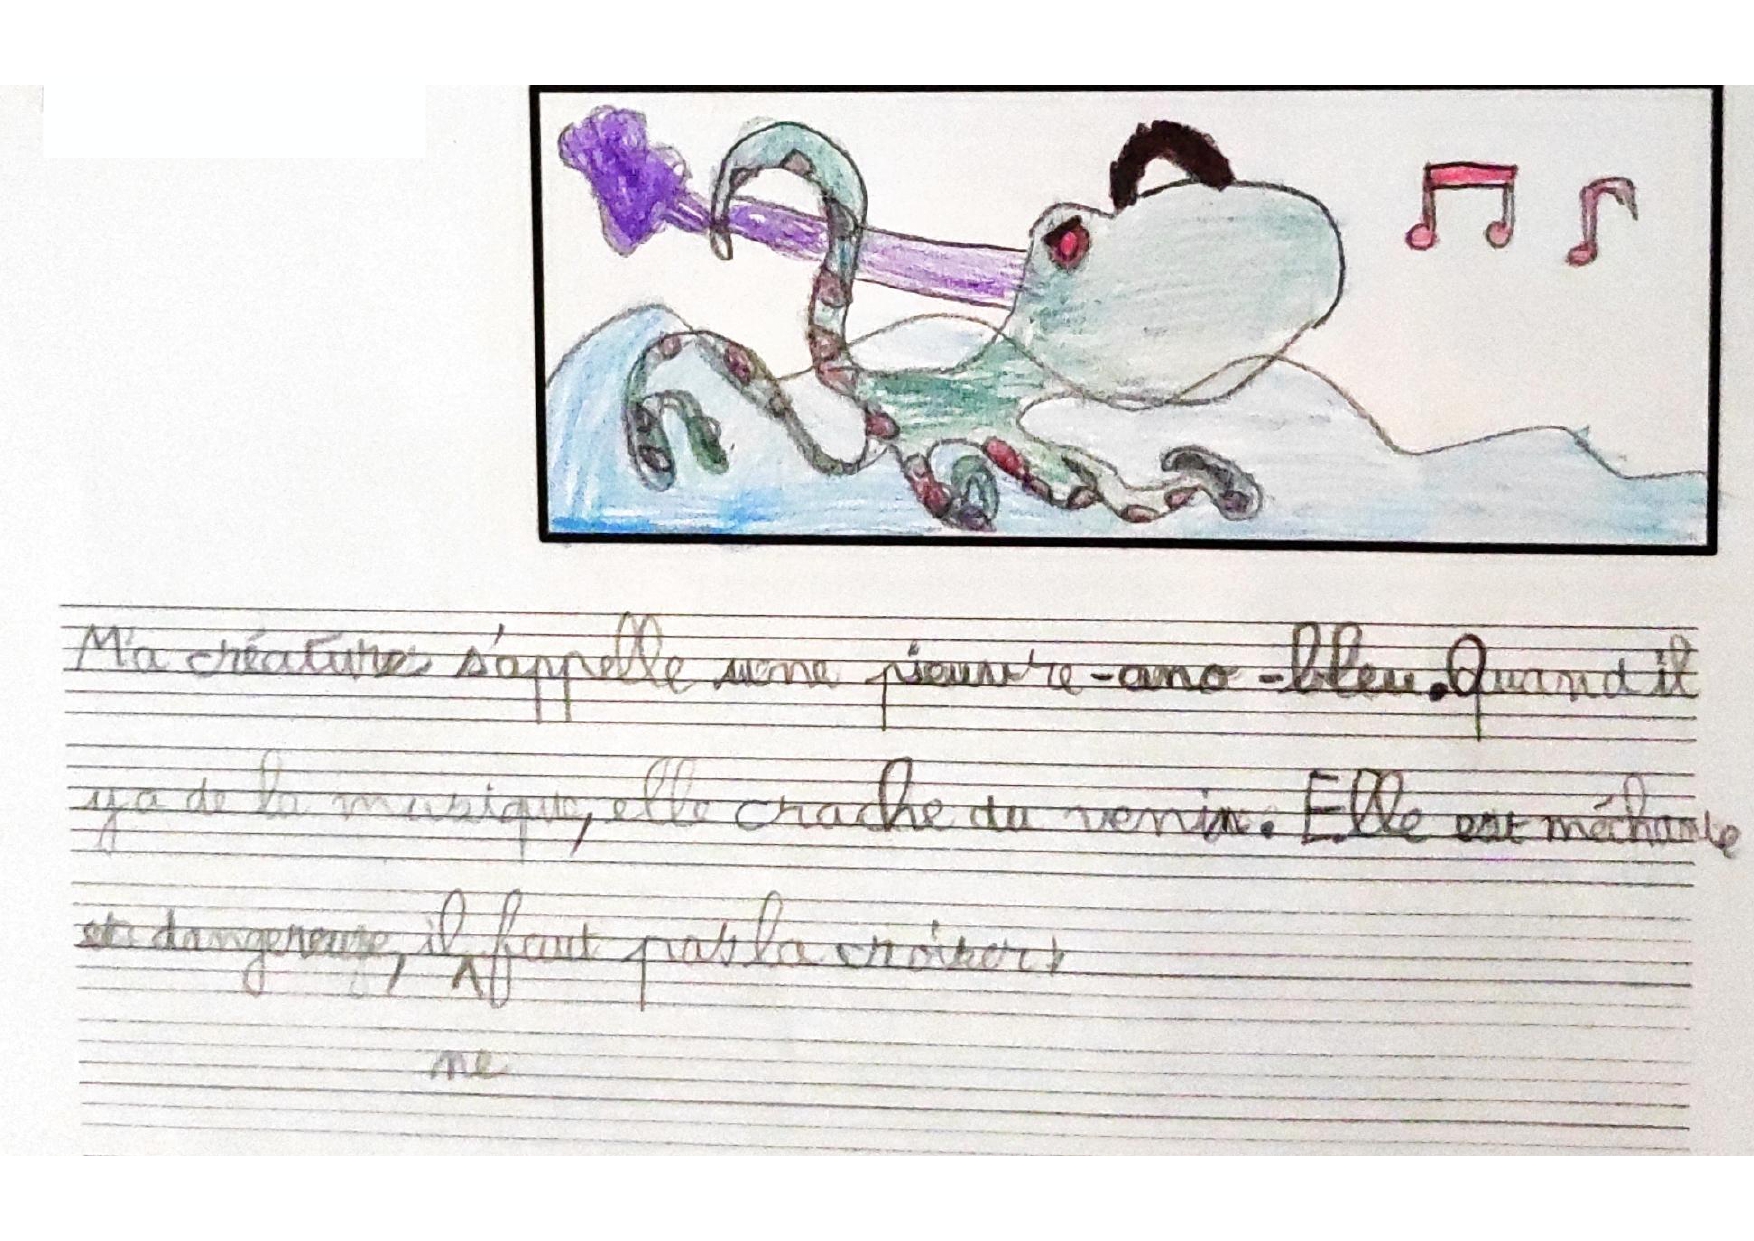 Ma créature s'appelle une pieuvre-ano-bleu. Quand il
y a de la musique, elle crache du venin. Elle est méchante
et dangereuse, il ^ faut pas la croiser.
ne